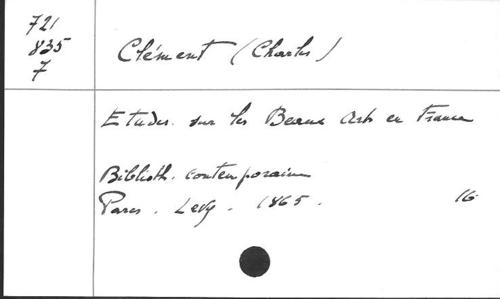 721
835
7
Clément (Charles)
Etudes sur les Beaux Arts en France
Biblioth. contemporaine
Paris. Levy. 1865. 16